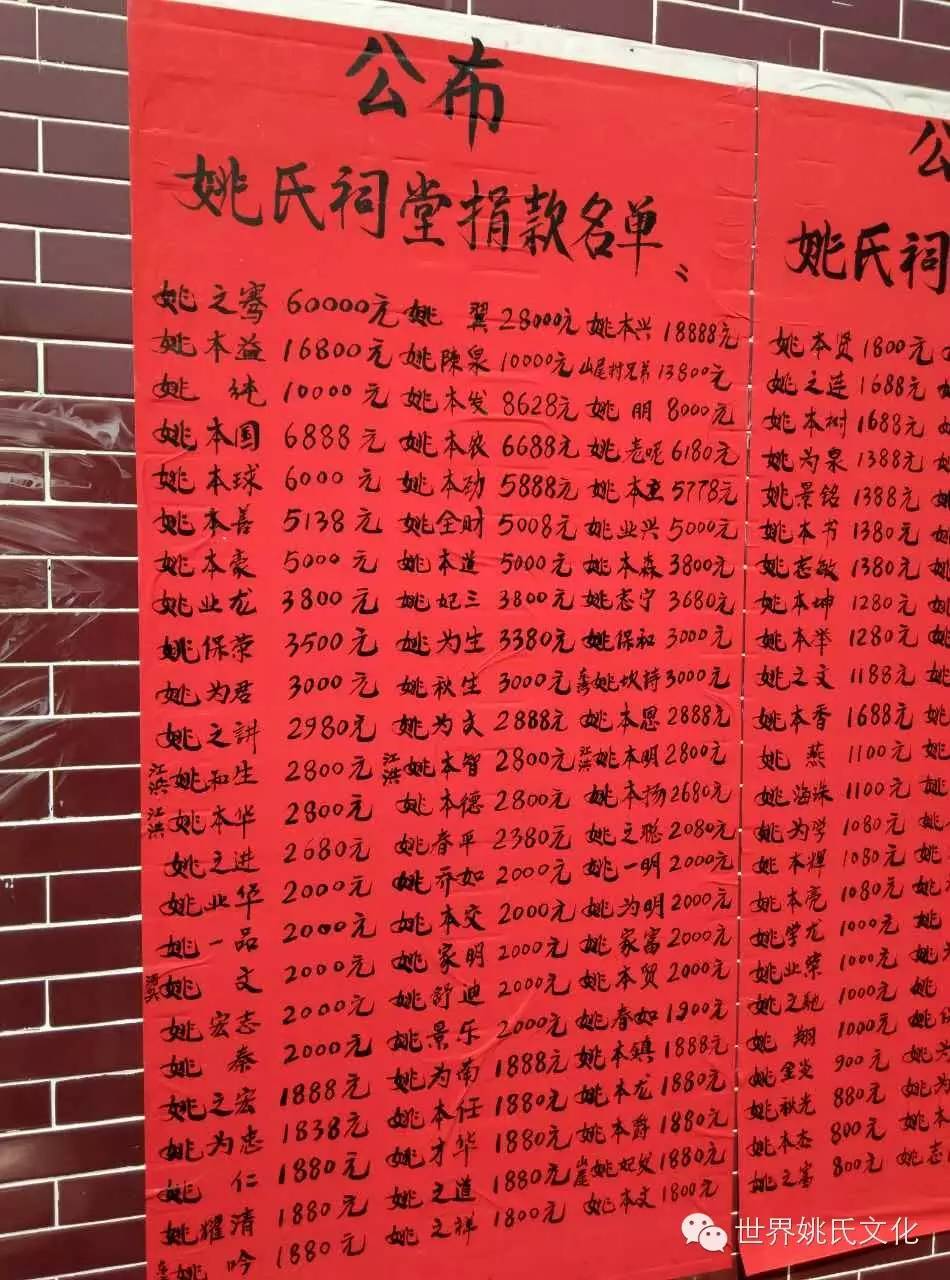 公布
姚氏祠堂捐款名单
姚之骞 60000元 姚翼 28000元 姚本兴 18888元
姚本益 16800元 姚陳泉 10000元 山尾村兄弟 13800元
姚纯 10000元 姚本发 8628元 姚明 8000元
姚本国 6888元 姚本农 6688元 姚老呢 6180元
姚本球 6000元 姚本劲 5888元 姚本 5778元
姚本善 5138元 姚全财 5008元 姚业兴 5000元
姚本豪 5000元 姚本道 5000元 姚本森 3800元
姚业龙 3800元 姚妃三 3800元 姚志宁 3680元
姚保荣 3500元 姚为生 3380元 姚保和 3000元
姚为君 3000元 姚秋生 3000元 姚坎诗 3000元
姚之讲 2980元 姚为文 2888元 姚本恩 2888元
江洪 姚和生 2800元 江洪 姚本智 2800元 江洪 姚本明 2800元
江洪 姚本华 2800元 姚本德 2800元 姚本扬 2680元
姚之进 2680元 姚春平 2380元 姚之聪 2080元
姚业华 2000元 姚乔如 2000元 姚一明 2000元
姚一品 2000元 姚本交 2000元 姚为明 2000元
姚文 2000元 姚家明 2000元 姚家富 2000元
姚宏志 2000元 姚舒迪 2000元 姚本贸 2000元
姚秦 2000元 姚景乐 2000元 姚春如 1900元
姚之宏 1888元 姚为南 1888元 姚本镇 1888元
姚为忠 1838元 姚本任 1880元 姚本龙 1880元
姚仁 1880元 姚才华 1880元 姚本爵 1880元
姚耀清 1880元 姚之道 1880元 山尾 姚妃发 1880元
姚吟 1880元 姚之祥 1800元 姚本文 1800元
公
姚氏祠
姚本贤 1800元
姚之连 1688元
姚本树 1688元
姚为泉 1388元
姚景铭 1388元
姚本书 1380元
姚志敏 1380元
姚本坤 1280元
姚本举 1280元
姚之文 1188元
姚本香 1688元
姚燕 1100元
姚海珠 1100元
姚为学 1080元
姚本辉 1080元
姚本亮 1080元
姚学龙 1000元
姚业荣 1000元
姚之驰 1000元
姚翔 1000元
姚金炎 900元
姚秋光 880元
姚本杰 800元
姚之富 800元
世界姚氏文化